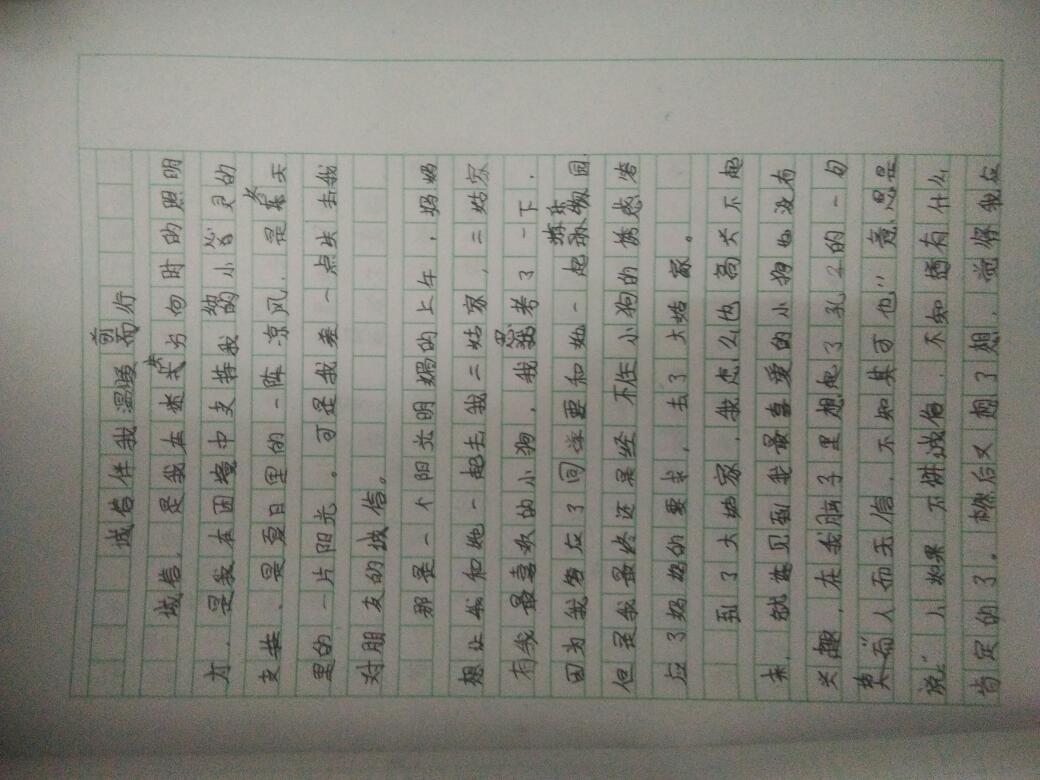 诚信伴我温暖前行
诚信,是我在迷失方向时的照明
灯,是我在困境中支持我的小心灵的
支柱,是夏日里的一阵凉风,是冬天
里的一片阳光。可是我差一点失去我
对朋友的诚信。
那是一个阳光明媚的上午,妈妈
想让我和她一起去我二姑家,二姑家
有我最喜欢的小狗,我思考了一下,
因为我答应了同学要和她一起去游乐园
但是我最终还是经不住小狗的诱惑答
应了妈妈的要求,去了大姑家。
到了大姑家,我怎么也高兴不起
来,就连见到我最喜爱的小狗也没有
兴趣,在我脑子里想起了孔子的一句
“人而无信,不知其可也”意思是
说:“人如果不讲诚信,不知道有什么
肯定的了。然后又想了想,觉得我应